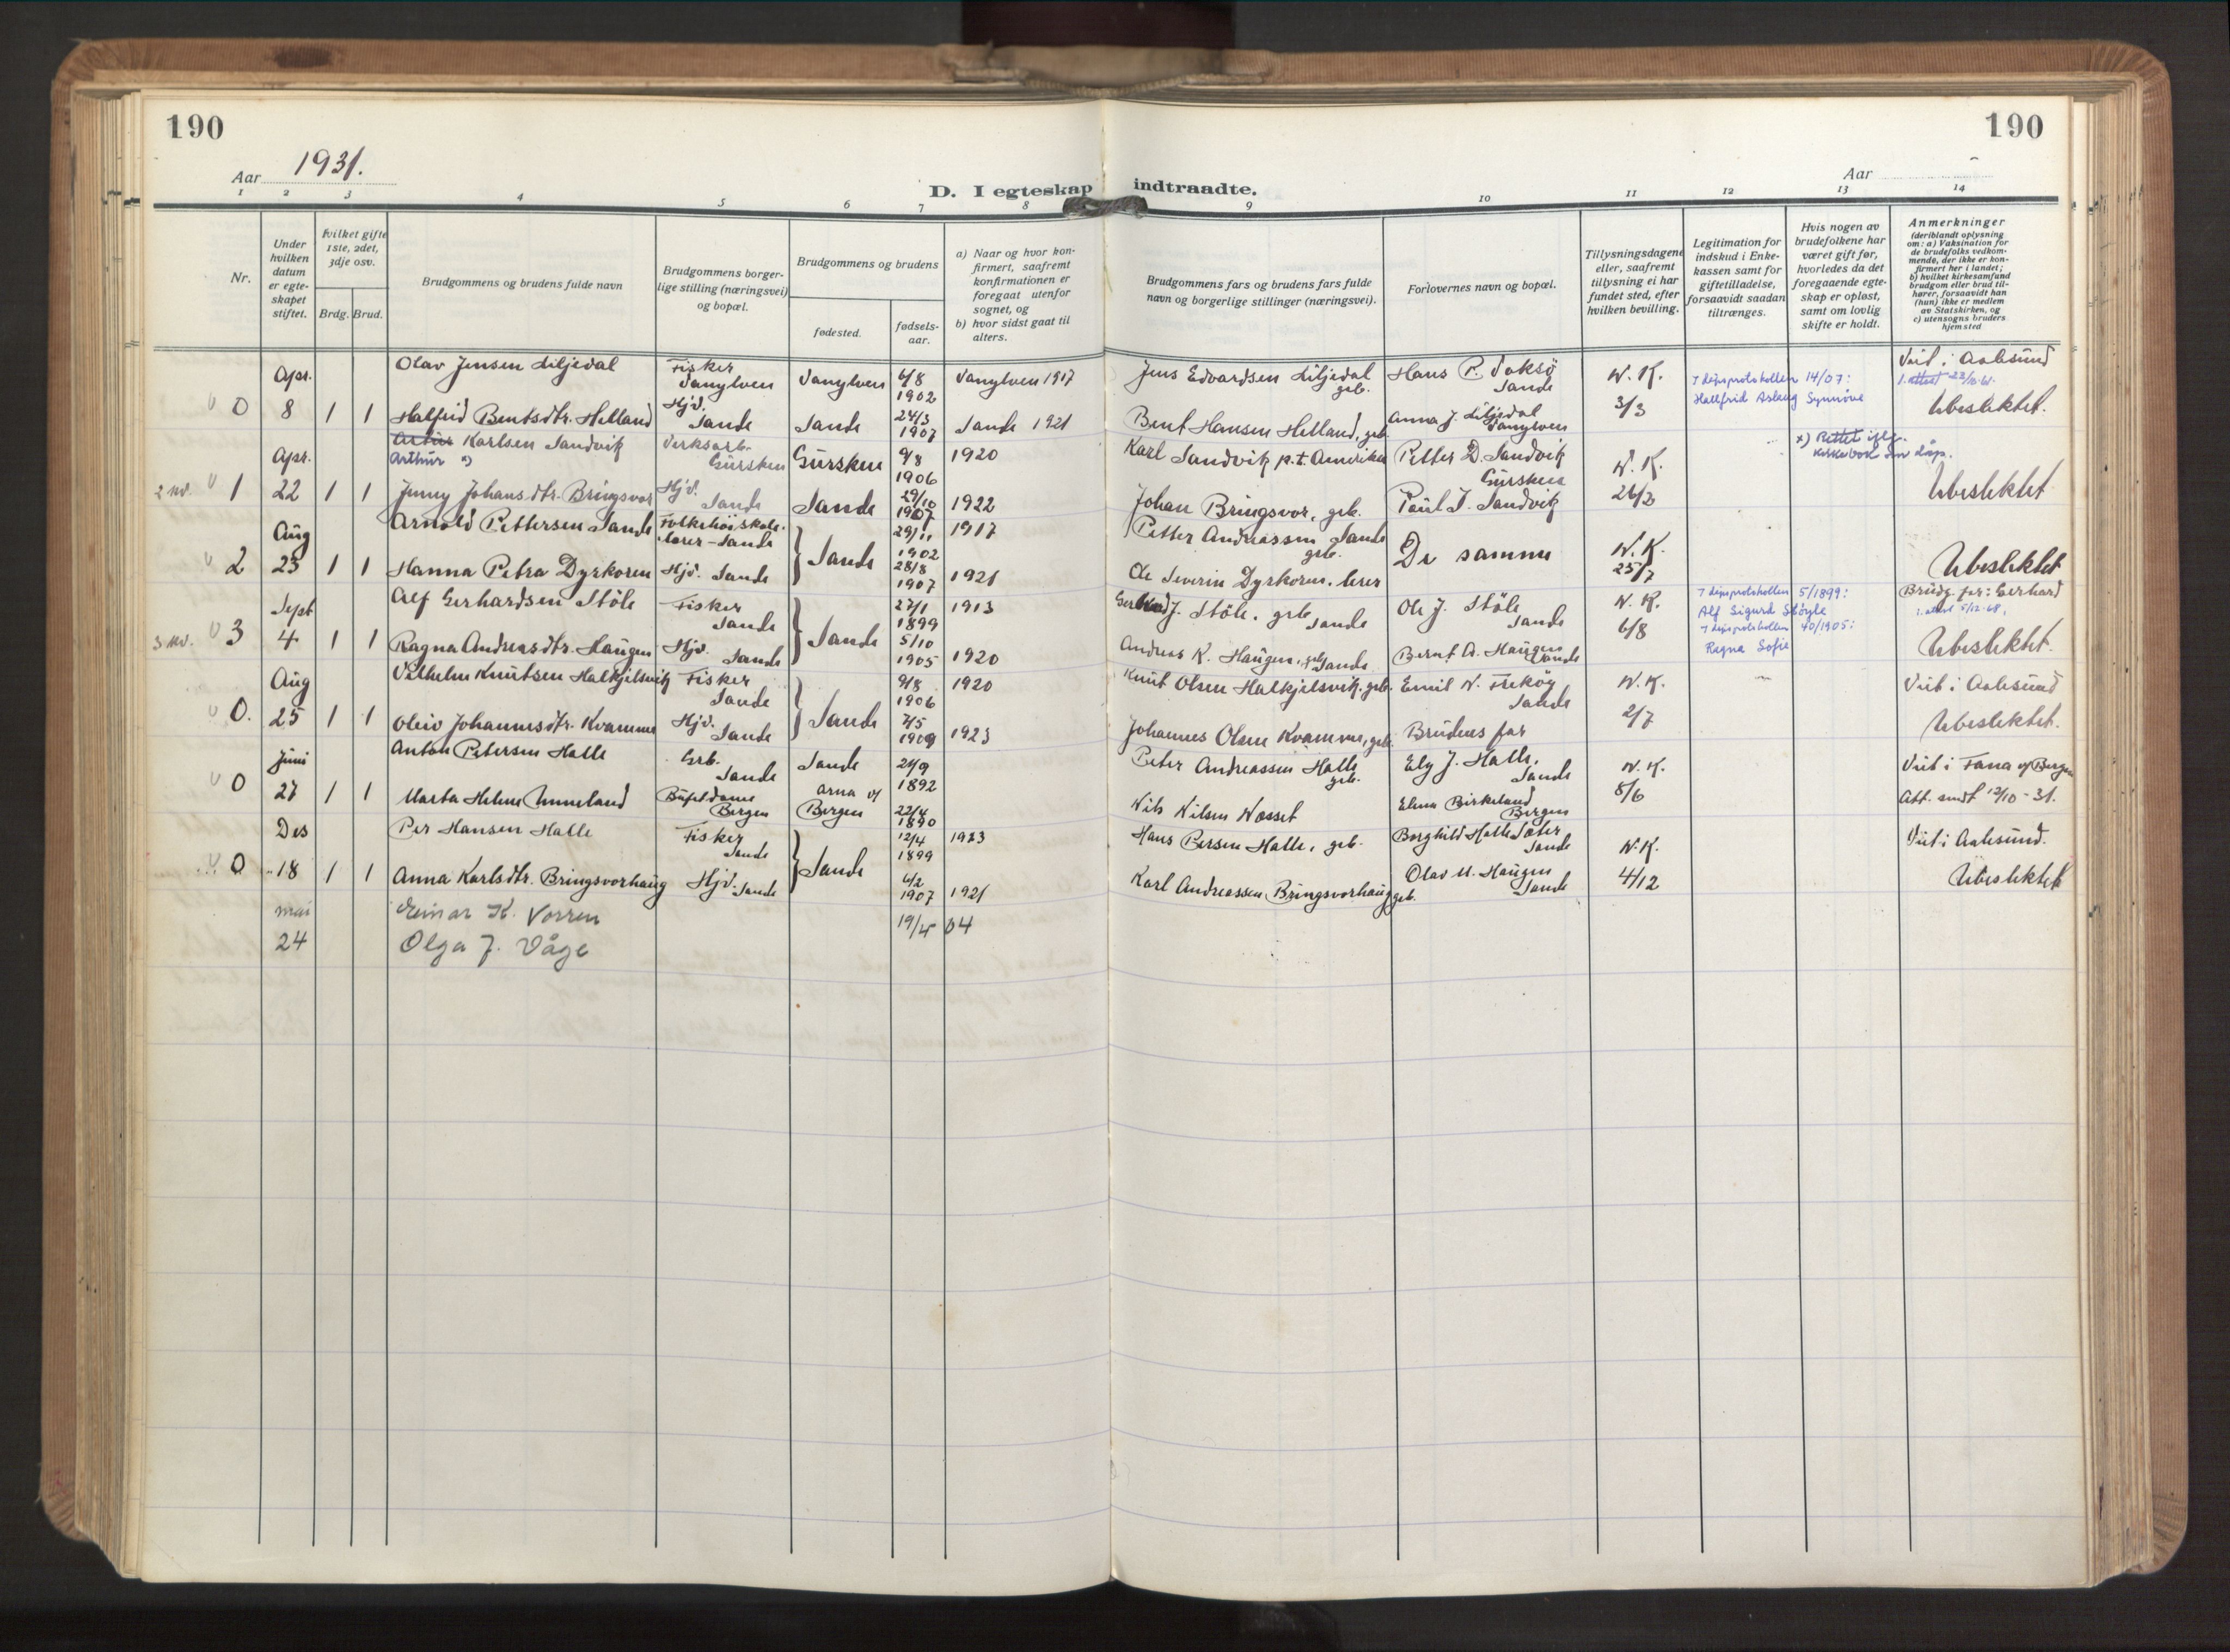 190
190
Aar 1931.
Aar
D. I egteskap indtraadte.
1 2 3 4 5 6 7 8 9 10 11 12 13 14
Nr.
Under hvilken datum er egteskapet stiftet.
Hvilket gifte 1ste, 2det, 3dje osv.
Brdg. Brud.
Brudgommens og brudens fulde navn
Brudgommens borgerlige stilling (næringsvei) og bopæl.
Brudgommens og brudens
fødested.
fødselsaar.
a) Naar og hvor konfirmert, saafremt konfirmationen er foregaat utenfor sognet, og
b) hvor sidst gaat til alters.
Brudgommens fars og brudens fars fulde navn og borgerlige stillinger (næringsvei).
Forlovernes navn og bopæl.
Tillysningsdagene eller, saafremt tillysning ei har fundet sted, efter hvilken bevilling.
Legitimation for indskud i Enkekassen samt for giftetilladelse, forsaavidt saadan tiltrænges.
Hvis nogen av brudefolkene har været gift før, hvorledes da det foregaaende egteskap er opløst, samt om lovlig skifte er holdt.
Anmerkninger
(deriblandt oplysning om: a) Vaksination for de brudefolks vedkommende, der ikke er konfirmert her i landet; b) hvilket kirkesamfund brudgom eller brud tilhører, forsaavidt han (hun) ikke er medlem av Statskirken, og c) utensogns bruders hjemsted
Apr. Olav Jensen Liljedal Fisker Vanylven Vanylven 6/8 1902 Vanylven 1917 Jens Edvardsen Liljedal grb. Hans P. Voksö Sande N. K. I dåpsprotokollen 14/07: Viet i Aalesund
0 8 1 1 Halfrid Bentsdtr. Helland Hjv. Sande Sande 24/3 1907 Sande 1921 Bent Hansen Helland, grb. Anna J. Liljedal Vanylven 3/3 Hallfrid Aslaug Synnöve Ubeslektet.
Apr. Artur Karlsen Sandvik Verksarb. Gursken Gursken 9/8 1906 1920 Karl Sandvik p.t. Amerika Petter D. Sandvik Gursken N. K. x) Rettet iflg. kirkebok
Arthur x)
2 kv. 1 22 1 1 Jenny Johansdtr. Bringsvor Hjv. Sande Sande 29/10 1907 1922 Johan Bringsvor, grb. Paul J. Sandvik 26/3 Ubeslektet
Aug Arnold Pettersen Sande Folkehöiskolelærer - Sande Sande 29/11 1902 1917 Petter Andreassen Sande grb. De samme N. K.
2 23 1 1 Hanna Petra Dyrkoren Hjv. Sande 28/8 1907 1921 Ole Severin Dyrkoren, lærer 25/7 Ubeslektet
Sept Alf Gerhardsen Støle Fisker Sande Sande 27/1 1899 1913 Gerhard J. Støle, grb. Sande Ole J. Støle Sande N. K. I dåpsprotokollen 5/1899: Alf Sigurd Støyle Brudg. far: Gerhard
3 kv. 3 4 1 1 Ragna Andreasdtr. Haugen Hjv. Sande 5/10 1905 1920 Andreas K. Haugen, grb Sande Bernt A. Haugen Sande 6/8 I dåpsprotokollen 40/1905: Ragna Sofie Ubeslektet.
Aug Vilhelm Knutsen Halkjelsvik Fisker Sande Sande 9/8 1906 1920 Knut Olsen Halkjelsvik, grb. Emil N. Frekøy Sande N. K. Viet i Aalesund
0. 25 1 1 Oleiv Johannesdtr. Kvamme Hjv. Sande 7/5 1909 1923 Johannes Olsen Kvamme, grb. Brudens far 2/7 Ubeslektet.
Juni Anton Petersen Halle Grb. Sande Sande 24/9 1892 Peter Andreassen Halle grb. Ely J. Halle, Sande N. K. Viet i Fana v/ Bergen
0 27 1 1 Marta Helene Unneland Büfetdame Bergen Arna v/ Bergen 22/4 1890 Nils Nilsen Nosset Elena Birkeland Bergen 8/6 Att. sendt 12/10-31.
Des Per Hansen Halle Fisker Sande Sande 12/4 1899 1913 Hans Persen Halle, grb. Borghild Halle Sæter Sande N. K. Viet i Aalesund.
0 18 1 1 Anna Karlsdtr. Bringsvorhaug Hjv. Sande 6/2 1907 1921 Karl Andreassen Bringsvorhaug grb. Olav M. Haugen Sande 4/12 Ubeslektet
mai Einar K. Vorren 19/4 04
24 Olga J. Våge